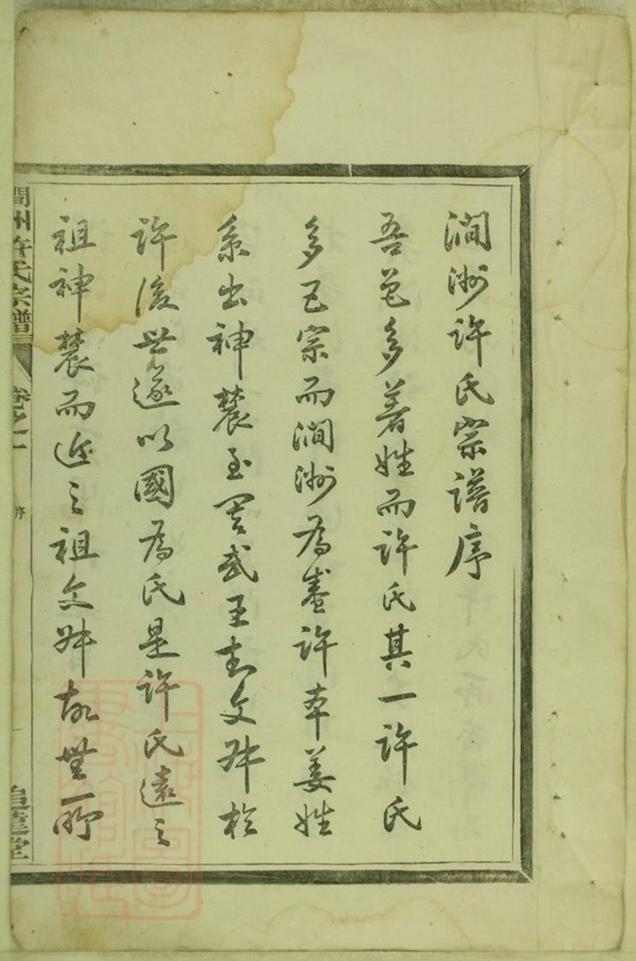 澗洲許氏宗譜序
吾邑多著姓而許氏其一許氏
多同宗而澗洲為盛許本姜姓
系出神農至周武王封文叔於
許後世遂以國為氏是許氏遠之
祖神農而近之祖文叔故無所
澗洲許氏宗譜
卷之一
序
追遠堂